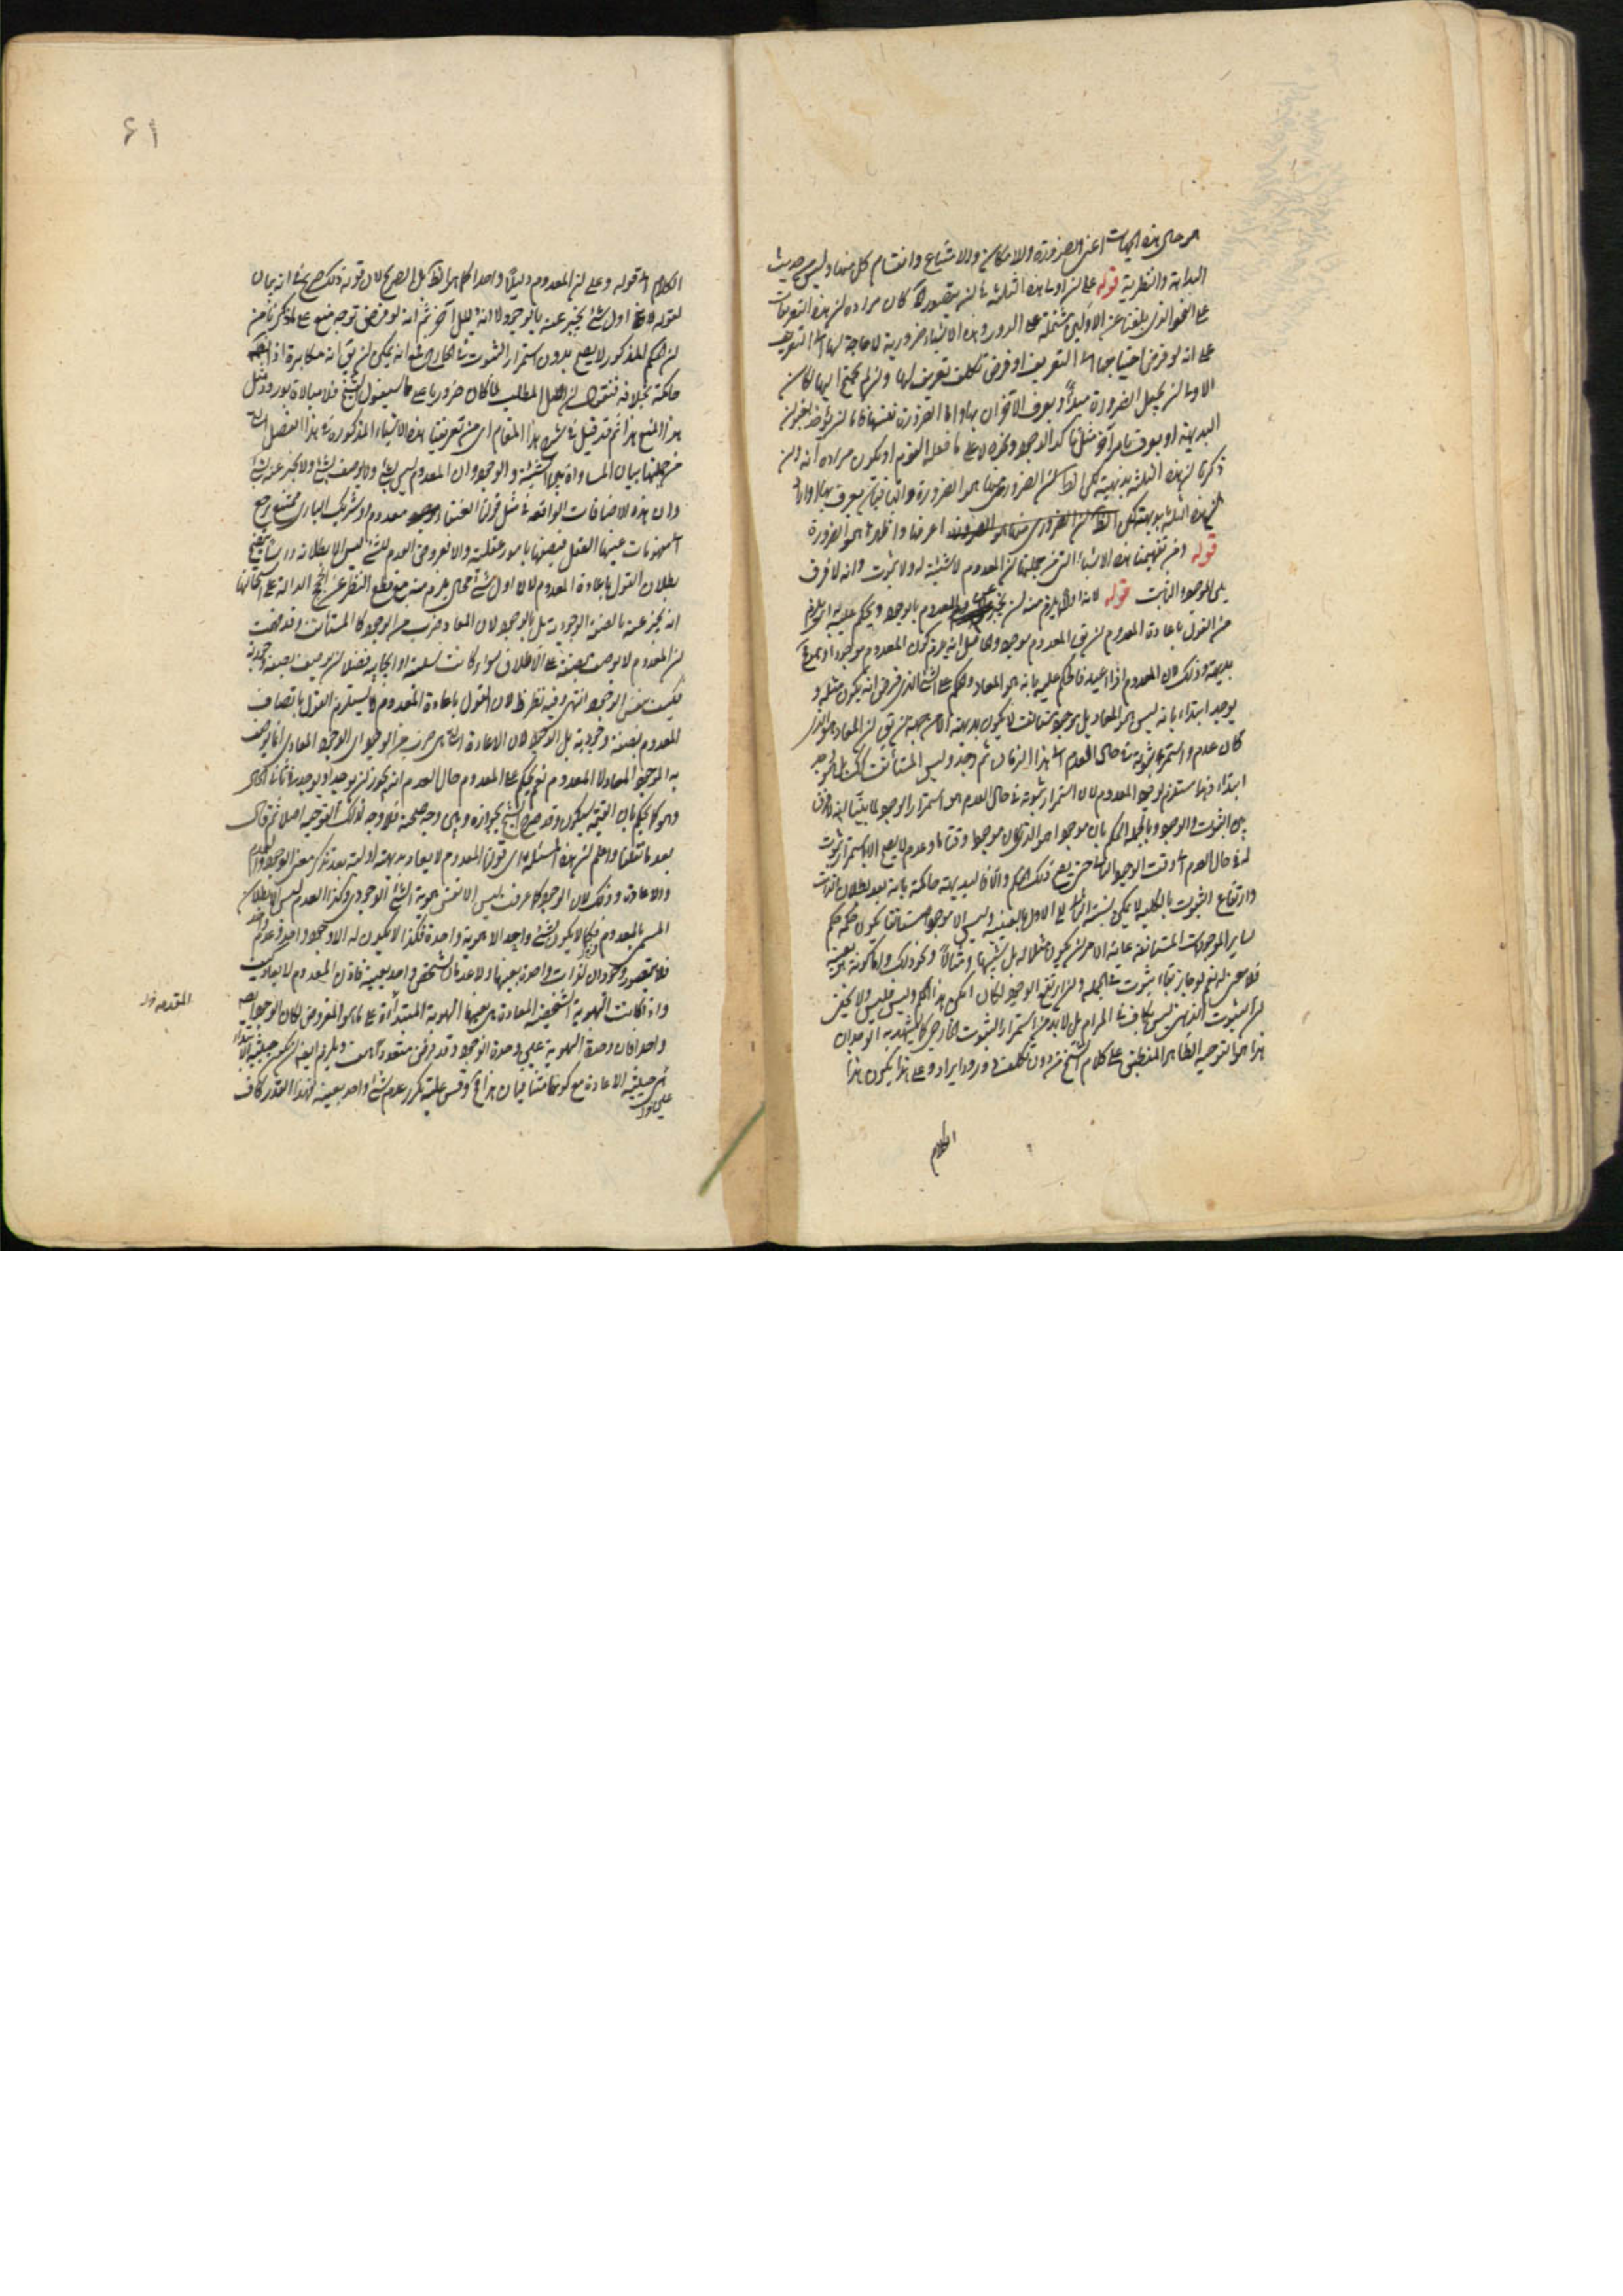 من حال هذه الجهات اعنى الضرورة والامكان والامتناع وانقسام كل منها وليس حديث
البداهة والنظرية قوله على ان اولى هذه الثلثة بان يتصور اه كان مراده ان هذه التعريفات
على النحو الذى بلغنا عن الاولين مشتملة على الدور وهذه الاشياء ضرورية لا حاجة لها الى التعريف
على انه لو فرض احتياجها الى التعريف او فرض تكلف تعريف لها وان لم يحتج اليها لكان
الاولى ان يجعل الضرورة مبدأ ويعرف الآخران بها واما الضرورة نفسها فاما ان يؤخذ بغير
البديهية او يعرف بامر آخر مثل تأكد الوجود ونحوه لا على ما فعله القوم او يكون مراده انه وان
ذكرنا ان هذه الثلثة بديهية لكن الضرورى منها هو الضرورة والباقيان يعرف بها
ان هذه الثلثة بديهية لكن اعرفها واظهرها هو الضرورة
قوله ومن تفهيمنا هذه الاشياء التى من جملتها ان المعدوم لا شيئية له ولا ثبوت وانه لا فرق
بين الموجود والثابت قوله لانه اول يلزم منه ان يخبر عن المعدوم بالوجود ويحكم عليه اى يلزم
من القول باعادة المعدوم ان يق المعدوم موجود يكون المعدوم موجودا
بديهة وذلك لان المعدوم اذا اعيد فالحكم عليه بانه هو المعاد والحكم على الشئ الذى فرض انه يكون مثله و
يوجد ابتداء بانه ليس هو المعاد بل موجود مستأنف لا يكون بديهة الا من جهة ان يق ان المعاد هو الذى
كان عدم واستمر ثبوته فى حال العدم الى هذا الزمان ثم وجد وليس المستأنف كك بل يوجد
ابتداء وهذا مستلزم لوجود المعدوم لان استمرار ثبوته فى حال العدم هو استمرار الوجود لما بينا انه لا فرق
بين الثبوت والوجود وبالجملة الحكم بان موجودا هو الذى كان موجودا وقتا ما وعدم لا يصح الا باستمرار ثبوت
له فى حال العدم الى وقت الوجود الثانى حتى يصح ذلك الحكم والا فالبديهة حاكمة بانه بعد بطلان الذات
وارتفاع الثبوت بالكلية لا يمكن نسبة الثانى الى الاول بالعينية وليس الا موجودا مستأنفا يكون حكمه حكم
ساير الموجودات المستأنفة غاية الامر ان يكون مثلا له بل شبيها ومثالا ونحو ذلك واما كونه هو بعينه
فلا معنى له نعم لو جاز بقاء ثبوت فى الجملة وان ارتفع الوجود لكان امكن هذا الحكم وليس فليس ولا يخفى
ان الثبوت الذهنى ليس بكاف فى المرام بل لا بد من استمرار الثبوت الخارجى كما يشهد به الوجدان
هذا هو التوجيه الظاهر المنطبق على كلام الشيخ من دون تكلف وورود ايراد وعلى هذا يكون هذا
الكلام
٤١
الكلام الى قوله وعلى ان المعدوم دليلا واحدا كما هو الظ بل الصريح لان قوله ذلك صريح فى انه بيان
لقوله اول شئ يخبر عنه بالوجود لا انه دليل آخر ثم انه لو فرض توجه منع على ما ذكرنا من
ان الحكم المذكور لا يصح بدون استمرار الثبوت فى الخارج مع انه يمكن ان يق انه مكابرة اذ البديهة
حاكمة بخلافه فنقول ان اصل المطلب لما كان ضروريا على ما سيقول الشيخ فلا مبالاة بورود مثل
هذا المنع هذا ثم قد قيل فى شرح هذا المقام اى من تعريفنا هذه الاشياء المذكورة فى هذا الفصل التى
من جملتها بيان المساواة بين الشيئية والوجود وان المعدوم ليس بشئ ولا يوصف بشئ ولا يخبر عنه بشئ
وان هذه الاضافات الواقعة فى مثل قولنا العنقاء معدوم او شريك البارى ممتنع يرجع
الى مفهومات عينها العقل فيصفها بامور عقلية والا فعروض العدم للشئ ليس الا بطلانه راسا يتضح
بطلان القول باعادة المعدوم لان اول شئ محال يلزم منه مع قطع النظر عن الحجج الدالة على استحالتها
انه يخبر عنه بالصفة الوجودية بل بالوجود لان المعاد ضرب من الوجود كما المستأنف وقد صحت
ان المعدوم لا يوصف بصفة على الاطلاق سواء كانت سلبية او ايجابية فضلا ان يوصف بصفة وجودية
فكيف بنفس الوجود انتهى وفيه نظر ظ لان القول باعادة المعدوم لا يستلزم القول باتصاف
المعدوم بصفة وجودية بل الوجود لان الاعادة التى هى ضرب من الوجود اى الوجود المعاد انما يوصف
به الموجود المعاد لا المعدوم نعم يحكم على المعدوم حال العدم انه يجوز ان يوجد او يوجد فى ثانى الحال
وهو كما يحكم بان القيمة سيكون وقد صرح الشيخ بجوازه وبين وجه صحته فلا وجه لذلك التوجيه اصلا ثم قال
بعد ما نقلنا واعلم ان هذه المسئلة اى قولنا المعدوم لا يعاد بديهية اولية بعد تذكر معنى الوجود والعدم
والاعادة وذلك لان الوجود كما عرفت ليس الا نفس هوية الشئ الوجودى وكذا العدم ليس الا بطلان
المسمى بالمعدوم فكما لا يكون لشئ واحد الا هوية واحدة فكذا لا يكون له الا وجود واحد وعدم واحد
فلا يتصور وجودان لذات واحدة بعينها ولا عدمان لشخص واحد بعينه فاذن المعدوم لا يعاد بعينه كيف
واذا كانت الهوية الشخصية المعادة هى بعينها الهوية المبتدأة على ما هو المفروض لكان الوجود ايضا
واحدا فان وحدة الهوية عين وحدة الوجود وقد فرض متعددا هف ويلزم ايضا ان يكون حيثية الابتداء
عين حيثية الاعادة مع كونهما متنافيان هذا وقس عليه تكرر عدم شئ واحد بعينه فهذا القدر كاف